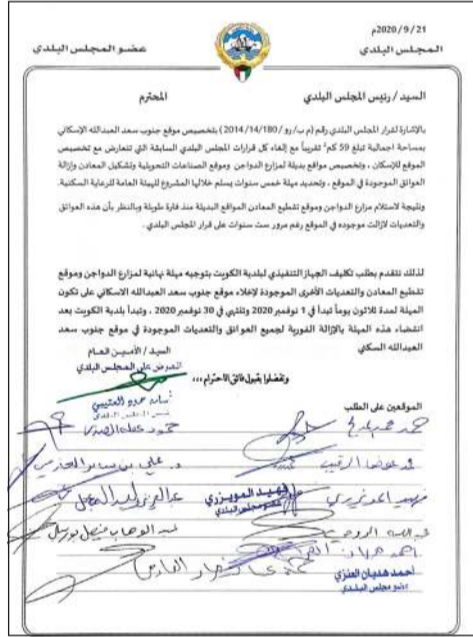 2020/9/21م
المجلس البلدي
عضو المجلس البلدي
السيد / رئيس المجلس البلدي المحترم
بالإشارة لقرار المجلس البلدي رقم (م ب/رو/2014/14/180) بتخصيص موقع جنوب سعد العبدالله الإسكاني
بمساحة اجمالية تبلغ 59 كم² تقريباً مع إلغاء كل قرارات المجلس البلدي السابقة التي تتعارض مع تخصيص
الموقع للإسكان ، وتخصيص مواقع بديلة لمزارع الدواجن وموقع الصناعات التحويلية وتشكيل المعادن وإزالة
العوائق الموجودة في الموقع ، وتحديد مهلة خمس سنوات يسلم خلالها المشروع للهيئة العامة للرعاية السكنية.
ونتيجة لاستلام مزارع الدواجن وموقع تقطيع المعادن المواقع البديلة منذ فترة طويلة وبالنظر بأن هذه العوائق
والتعديات لازالت موجوده في الموقع رغم مرور ست سنوات على قرار المجلس البلدي .
لذلك نتقدم بطلب تكليف الجهاز التنفيذي لبلدية الكويت بتوجيه مهلة نهائية لمزارع الدواجن وموقع
تقطيع المعادن والتعديات الأخرى الموجودة لإخلاء موقع جنوب سعد العبدالله الاسكاني على تكون
المهلة لمدة ثلاثون يوماً تبدأ في 1 نوفمبر 2020 وتنتهي في 30 نوفمبر 2020 ، وتبدأ بلدية الكويت بعد
انقضاء هذه المهلة بالإزالة الفورية لجميع العوائق والتعديات الموجودة في موقع جنوب سعد
العبدالله السكني
السيد / الأمين العام
للعرض على المجلس البلدي
وتفضلوا بقبول فائق الاحترام ،،،
أسامه حمود العتيبي
رئيس المجلس البلدي
الموقعين على الطلب
فهيد المويزري
عضو مجلس البلدي
عبدالوهاب
أحمد هديان العنزي
عضو مجلس البلدي